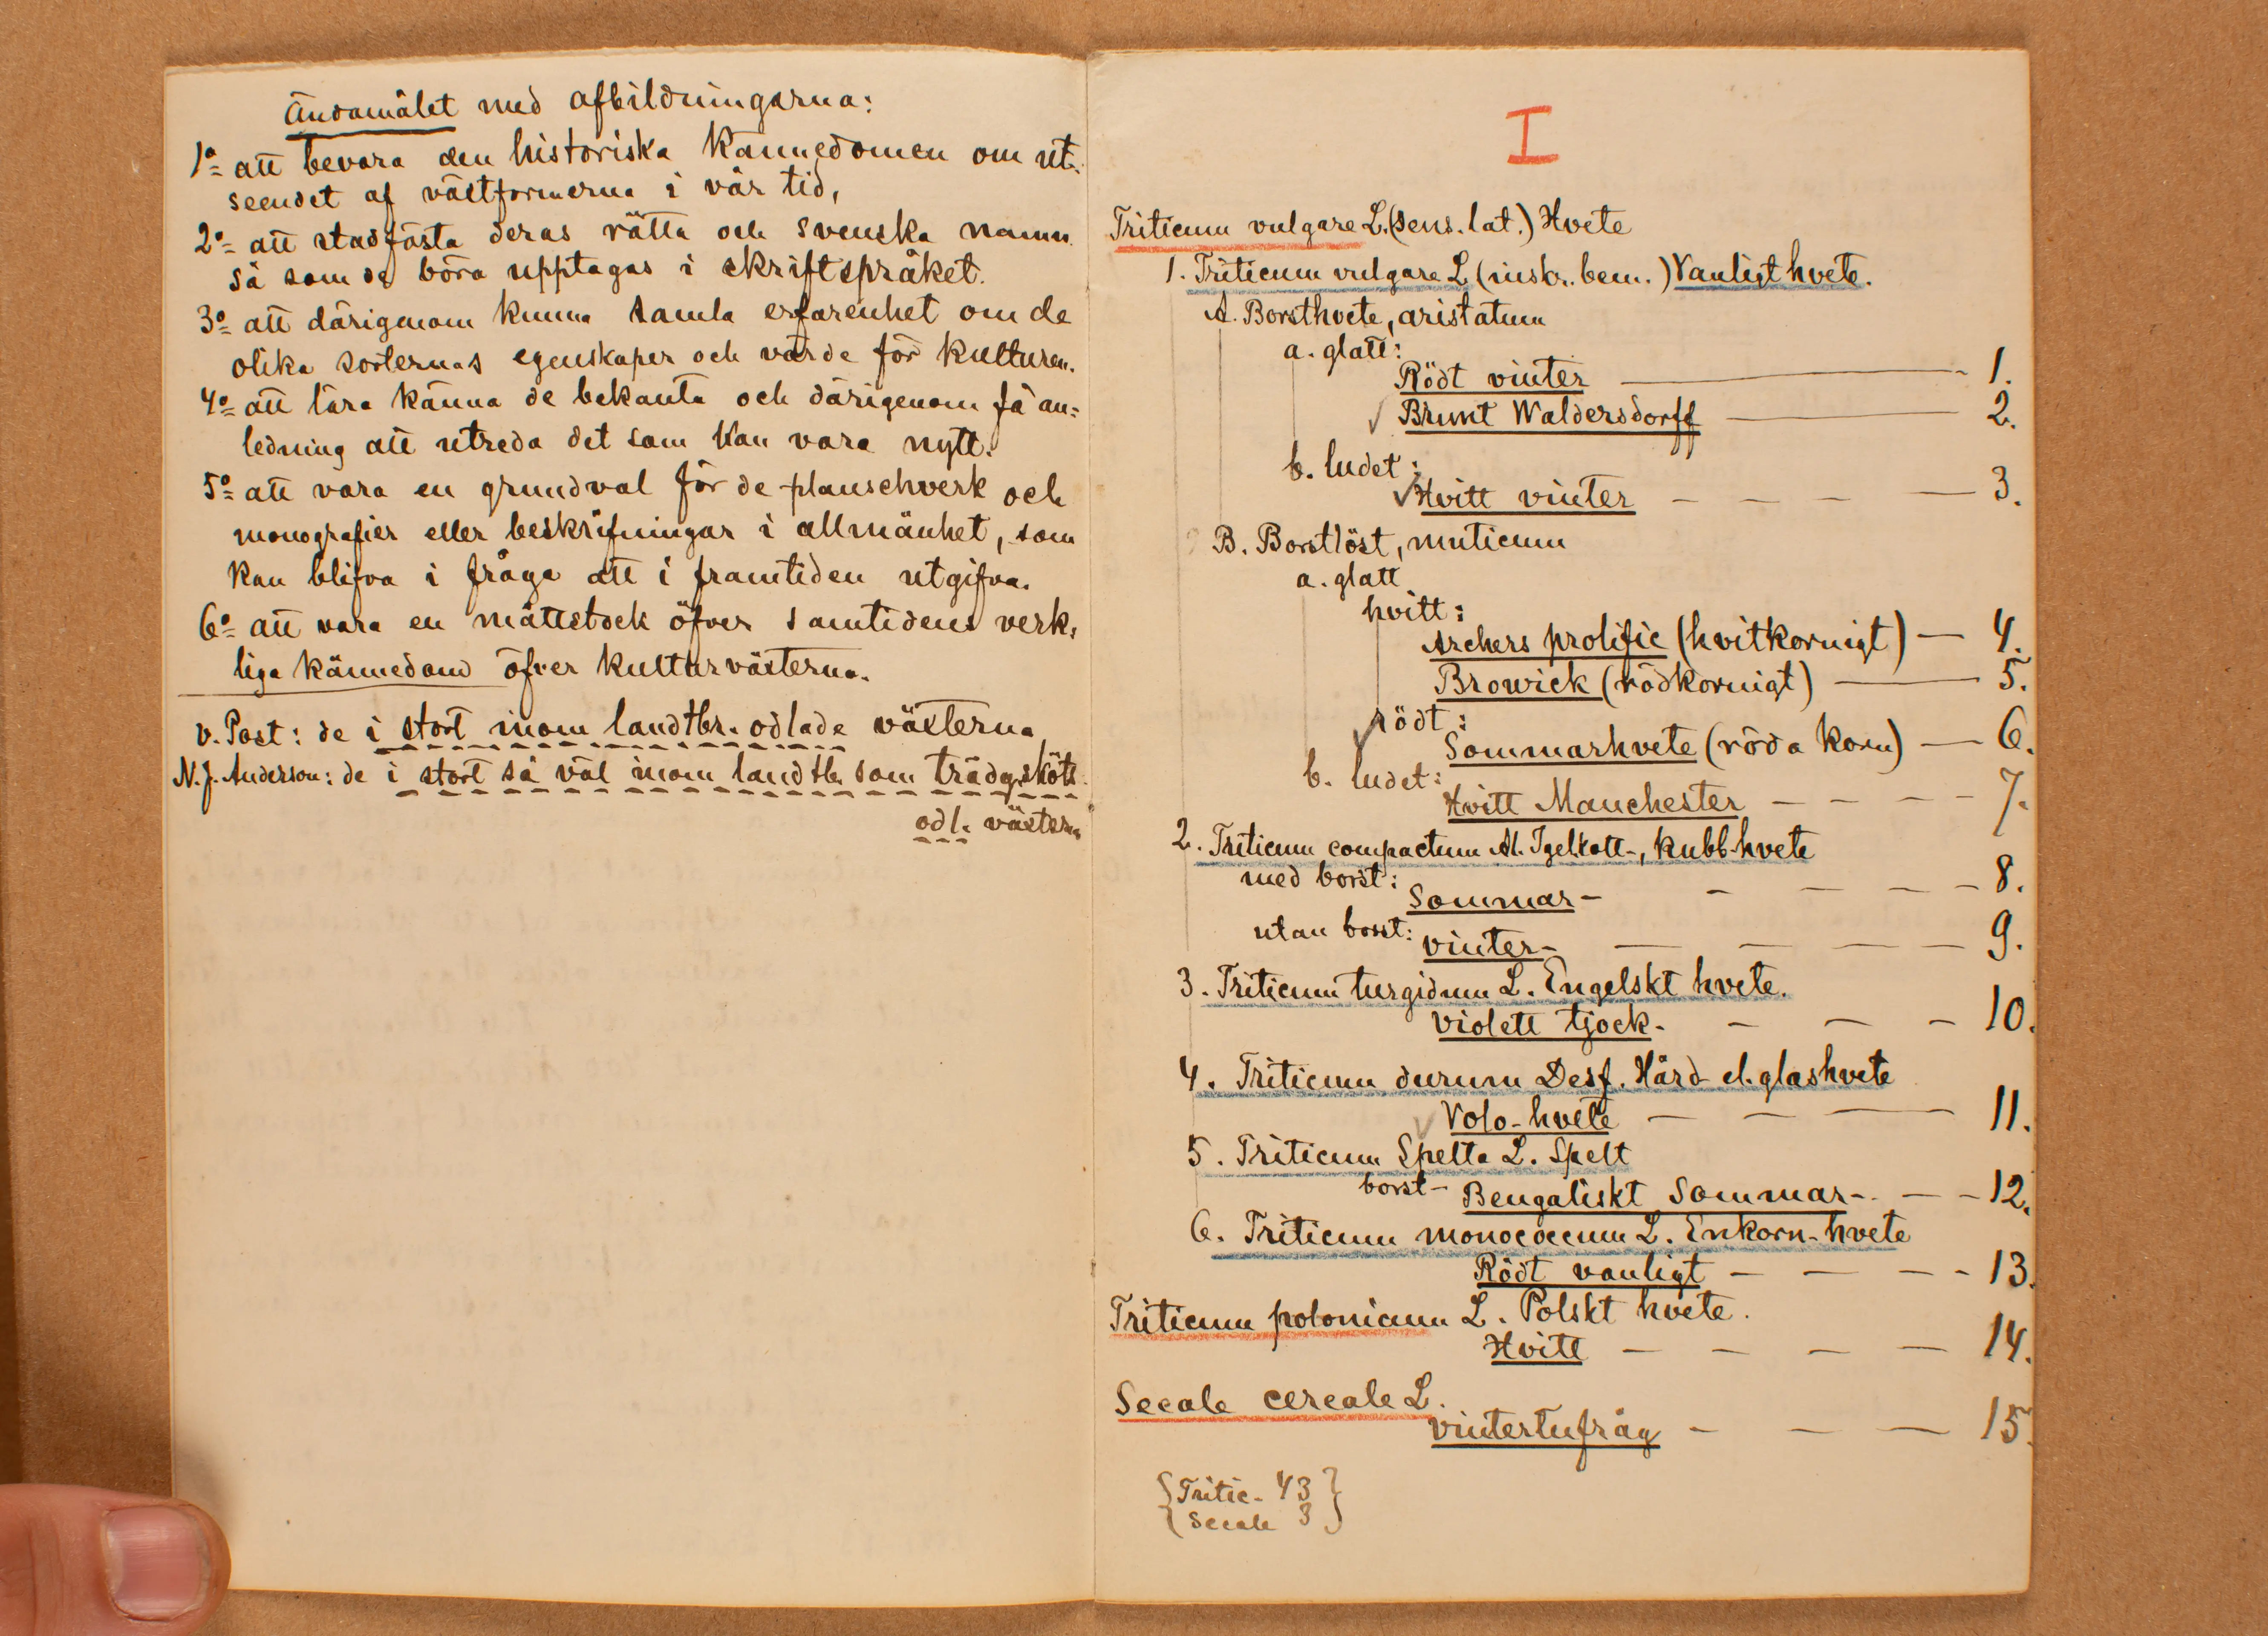 Ändamålet med afbildningarna:
1º att bevara den historiska kännedomen om ut-
seendet af växtformerna i vår tid,
2º att stadfästa deras rätta och svenska namn
så som de böra upptagas i skriftspråket.
3º att därigenom kunna samla erfarenhet om de
olika sorternas egenskaper och värde för kulturen.
4º att lära känna de bekanta och därigenom få an-
ledning att utreda det som kan vara nytt.
5º att vara en grundval för de planschverk och
monografier eller beskrifningar i allmänhet, som
kan blifva i fråga att i framtiden utgifva.
6º att vara en måttstock öfver samtidens verk-
liga kännedom öfver kulturväxterna.
v. Post: de i stort inom landtbr. odlade växterna
N. J. Anderson: de i stort så väl inom landtb. som trädg.sköts.
odl. växterna
I
Triticum vulgare L. (sens. lat.) Hvete
1. Triticum vulgare L (inskr. bem.) Vanligt hvete.
A. Borsthvete, aristatum
a. glatt:
Rödt vinter — 1.
✓ Brunt Waldersdorff — 2.
b. ludet:
✓ Hvitt vinter - - - — 3.
B. Borstlöst, muticum
a. glatt
hvitt:
Archers prolific (hvitkornigt) — 4.
Browick (rödkornigt) — 5.
✓ rödt:
Sommarhvete (röda korn) — 6.
b. ludet:
Hvitt Manchester - - - - 7.
2. Triticum compactum Al. Igelkott-, kubb-hvete
med borst:
Sommar- - - - - 8.
utan borst:
vinter- — — — — 9.
3. Triticum turgidum L. Engelskt hvete.
violett tjock- - - - 10.
4. Triticum durum Desf. Hård- el. glashvete
✓ Volo-hvete — — — 11.
5. Triticum Spelta L. Spelt
borst- Bengaliskt Sommar- - - 12.
6. Triticum monococcum L. Enkorn-hvete
Rödt vanligt - - - - 13.
Triticum polonicum L. Polskt hvete.
Hvitt - - - - 14.
Secale cereale L.
vintertufråg - - - 15
{Tritic. 43}
{Secale 3}